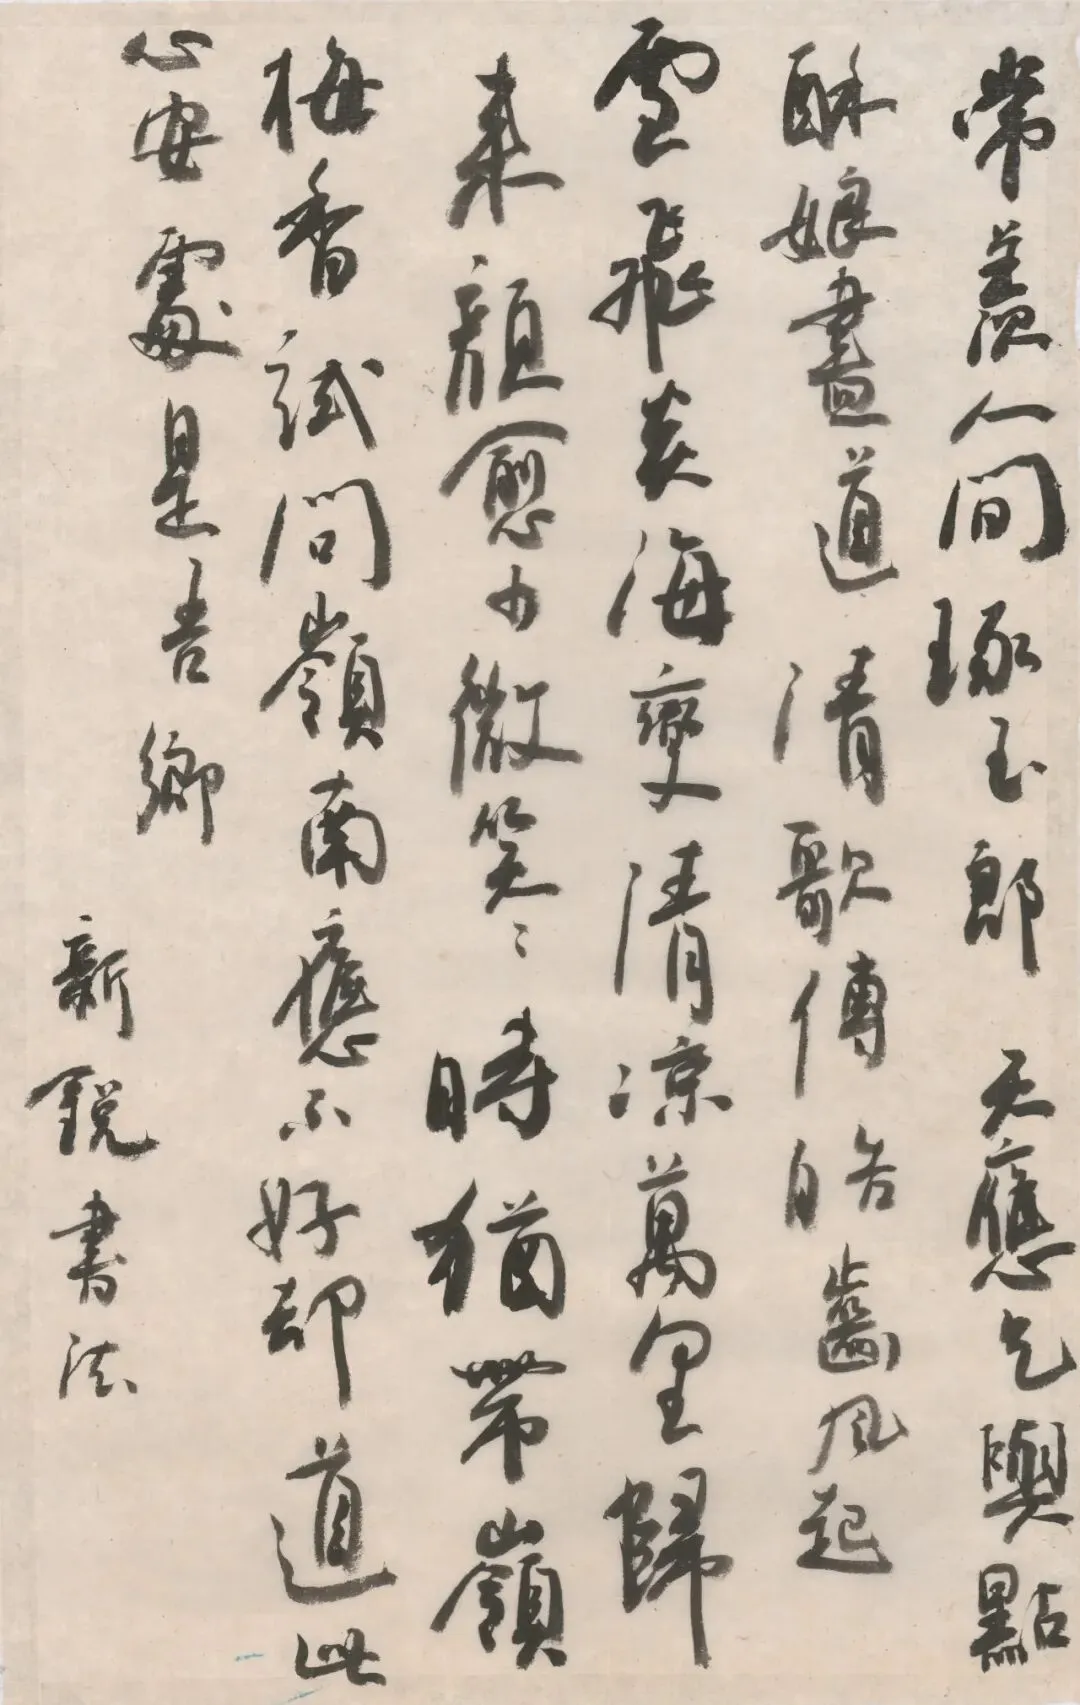 常羨人間琢玉郎天應乞與點
酥娘盡道清歌傳皓齒風起
雪飛炎海變清涼萬里歸
來顏愈少微笑〻時猶帶嶺
梅香試問嶺南應不好卻道此
心安處是吾鄉
新銳書法